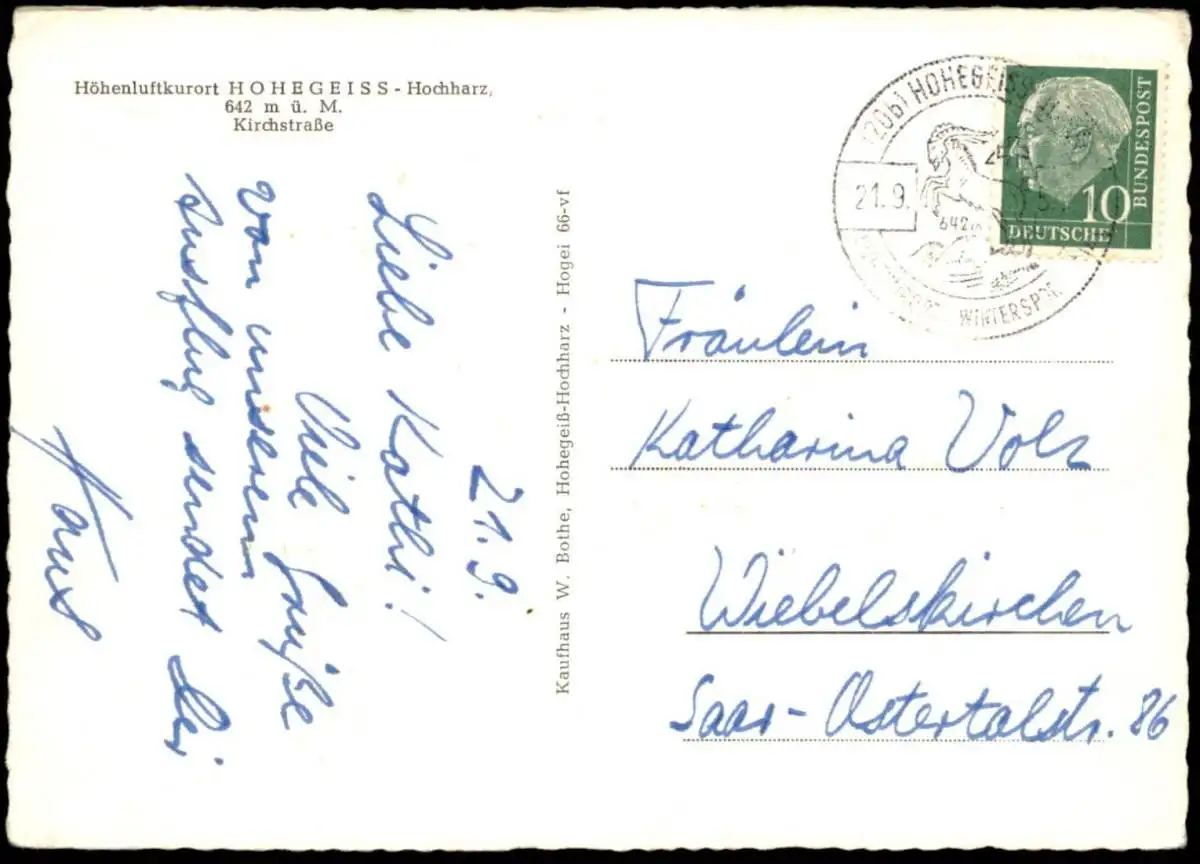 Höhenluftkurort HOHEGEISS - Hochharz,
642 m ü. M.
Kirchstraße
21.9.
Liebe Kathi!
Viele Grüße
von unserem
Ausflug sendet Dir
Hans
Kaufhaus W. Bothe, Hohegeiß-Hochharz - Hogei 66-vf
(20b) HOHEGEISS
21.9.
642 m
WINTERSPOR
BUNDESPOST
10
DEUTSCHE
Fräulein
Katharina Volz
Wiebelskirchen
Saar-Ostertalstr. 86